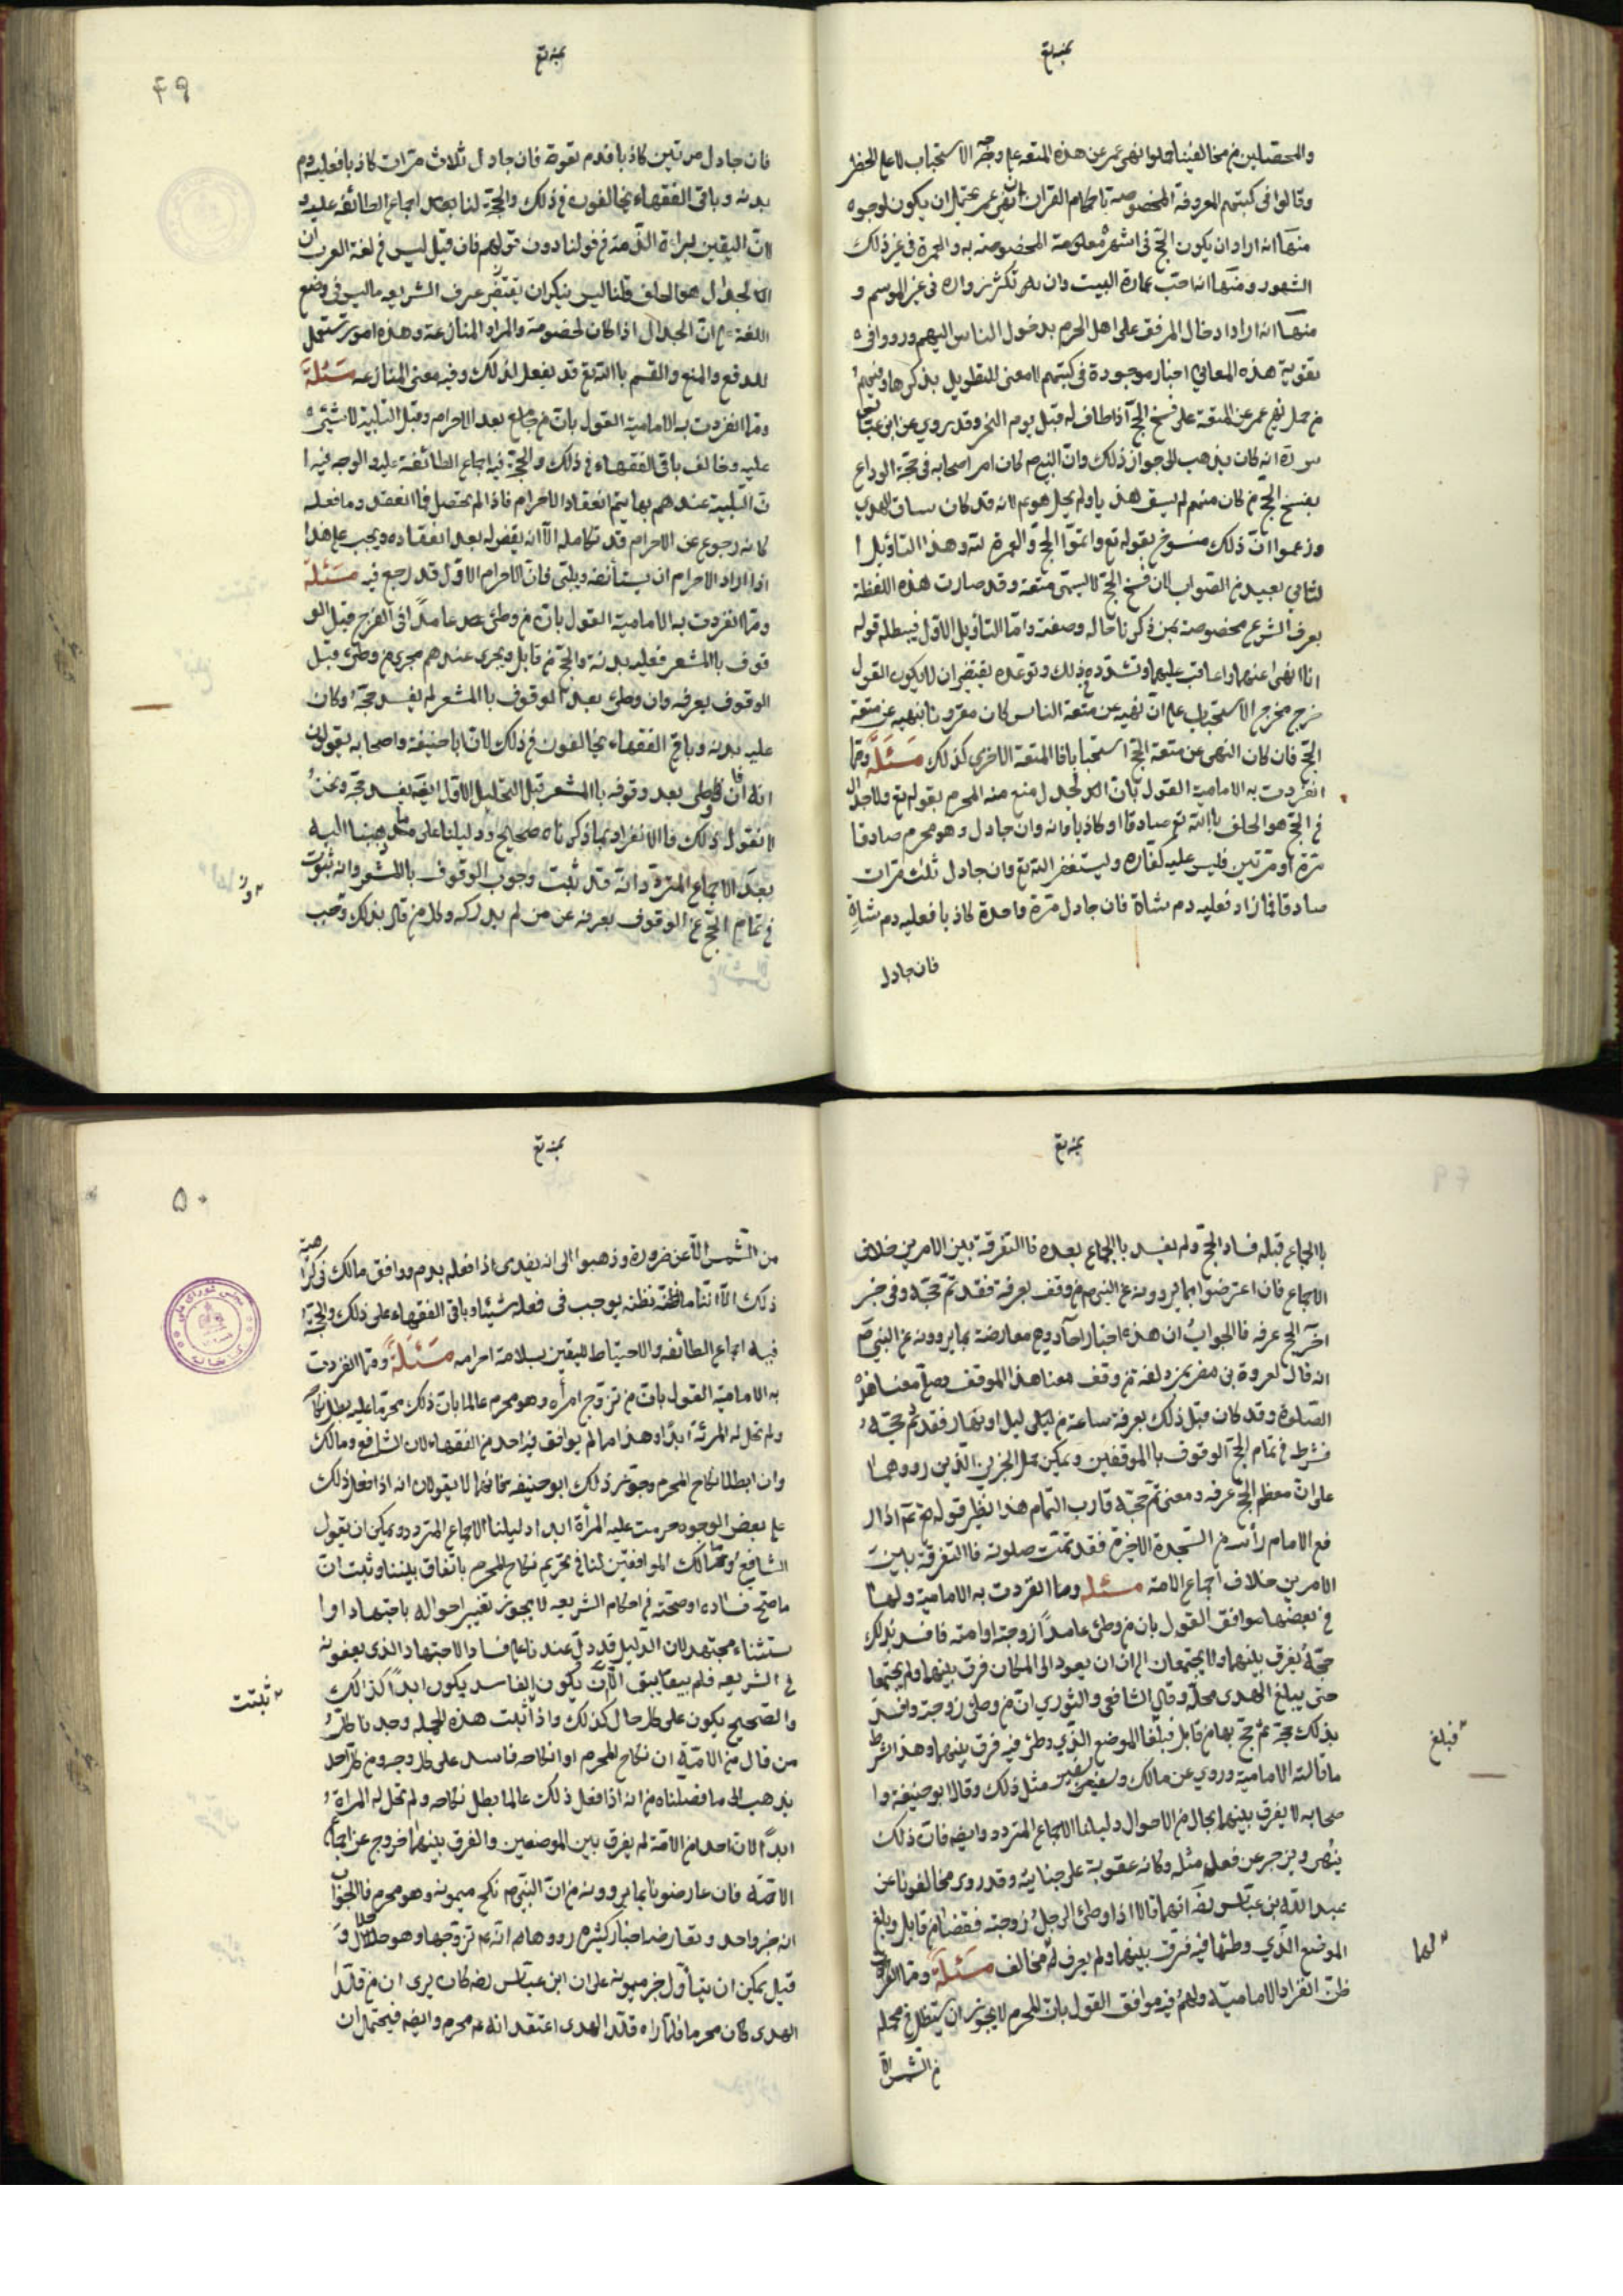 بمنه تع
والمحصلين من مخالفينا حملوا نهي عمر عن هذه المتعه علي وجه الاستحباب لا علي الحظر
وقالوا في كتبهم المعروفة المخصوصة باحكام القران ان نهي عمر يحتمل ان يكون لوجوه
منها انه اراد ان يكون الحج في اشهره معلومة المخصوصة به والعمرة في غير ذلك
الشهور ومنها انه احب عمارة البيت وان يكثر زواره في غير الموسم و
منها انه اراد ادخال المرفق على اهل الحرم بدخول الناس اليهم ورووا في
تقوية هذه المعاني اخبار موجودة في كتبهم لا معنى للتطويل بذكرها وفيهم
من حمل نهي عمر عن المتعة على فسخ الحج اذا طاف له قبل يوم النحر وقد روي عن ابن عباس
انه كان يذهب الى جواز ذلك وان النبي م كان امر اصحابه في حجة الوداع
بفسخ الحج من كان منهم لم يسق هديا ولم يحل هو م لانه قد كان ساق الهدي
وزعموا ان ذلك منسوخ بقوله تع واتموا الحج والعمرة لله وهذا التاويل ا
لثاني بعيد من الصواب لان فسخ الحج لا يسمى متعة وقد صارت هذه اللفظة
بعرف الشرع مخصوصة بمن ذكرنا حاله وصفته واما التأويل الاول فيبطله قوله
انا انهى عنهما واعاقب عليهما وتشدده بذلك وتوعده يقتضي ان لا يكون القول
خرج مخرج الاستحباب على ان نهيه عن متعة الناس كان مقرونا بنهيه عن متعة
الحج فان كان النهي عن متعة الحج استحبابا فالمتعة الاخرى كذلك مسئلة ومما
انفردت به الامامية القول بان الجدال منع منه المحرم بقوله تع ولا جدال
في الحج هو الحلف بالله تع صادقا او كاذبا وانه وان جادل وهو محرم صادقا
مرة او مرتين فليس عليه كفاره وليستغفر الله تع وان جادل ثلث مرات
صادقا فما زاد فعليه دم شاة فان جادل مرة واحدة كاذبا فعليه دم شاة
فان جادل
بمنه تع
۴۹
فان جادل مرتين كاذبا فدم بقرة فان جادل ثلاث مرات كاذبا فعليه دم
بدنه وباقي الفقهاء يخالفون في ذلك والحجة لنا بعد اجماع الطائفه عليه و
لان اليقين لبراءة الذمة في قولنا دون قولهم فان قيل ليس في لغة العرب ان
الجدال هو الحلف قلنا ليس ينكر ان يقتضي عرف الشريعه ما ليس في وضع
اللغة على ان الجدال اذا كان لخصومة والمراد المنازعة وهذه امور تستعمل
للدفع والمنع والقسم بالله تع قد يفعل لذلك وفيه معنى المنازعه مسئلة
ومما انفردت به الامامية القول بان من جامع بعد الاحرام وقبل التلبية لا شيئ
عليه وخالف باقي الفقهاء في ذلك والحجة فيه اجماع الطائفة عليه والوجه فيه ا
ن التلبية عندهم بها يتم انعقاد الاحرام فاذا لم يحصل فما انعقد وما فعله
كانه رجوع عن الاحرام قد تكامله الا انه يقض له بعد انعقاده ويجب على هذا
اذا اراد الاحرام ان يستأنفه ويلبي فان الاحرام الاول قد رجع فيه مسئلة
ومما انفردت به الامامية القول بان من وطئ عامدا في الفرج قبل الو
قوف بالمشعر فعليه بدنة والحج من قابل ويجرى عندهم مجرى من وطئ قبل
الوقوف بعرفه وان وطئ بعد الوقوف بالمشعر لم يفسد حجة وكان
عليه بدنه وباقي الفقهاء يخالفون في ذلك لان ابا حنيفة واصحابه يقولون
انه ان وطئ بعد وقوفه بالمشعر قبل التحليل الاول لا يفسد حجه ونحن
لا نقول ذلك فالانفراد بما ذكرناه صحيح ودليلنا على ما ذهبنا اليه
بعد الاجماع المتردد انه قد ثبت وجوب الوقوف بالمشعر وانه ينوب
في تمام الحج عن الوقوف بعرفه عن من لم يدركه وكل من قال بذلك وجب
بمنه تع
بالجماع قبله فساد الحج ولم يفسد بالجماع بعده فالتفرقة بين الامرين خلاف
الاجماع فان اعترضوا بما يروونه عن النبي م من وقف بعرفة فقد تم حجه وفي خبر
اخر الحج عرفه فالجواب ان هذه اخبار احاد وهي معارضة بما يروونه عن النبي ص
انه قال لعروة بن مضرس بمزدلفة من وقف معنا هذا الموقف وصلى معنا هذه
الصلوة وقد كان قبل ذلك بعرفة ساعة من ليل او نهار فقد تم حجه
فشرط في تمام الحج الوقوف بالموقفين ويمكن حمل الخبرين الذين رووهما
على ان معظم الحج عرفه ومعنى تم حجه قارب التمام هذا نظير قوله ع م اذا ر
فع الامام رأسه من السجدة الاخيرة فقد تمت صلوته فالتفرقة بين
الامرين خلاف اجماع الامة مسئله ومما انفردت به الامامية ولها
في بعضها موافق القول بان من وطئ عامدا زوجته او امته فافسد بذلك
حجه يفرق بينهما ولا يجتمعان الى ان يعود الى المكان فرق بينهما ولم يجتمعا
حتى يبلغ الهدى محله وقال الشافعى والثوري ان من وطئ زوجته وافسد
بذلك حجه ثم حج بها من قابل فبلغا الموضع الذي وطئ فيه فرق بينهما وهذا شرط
ما قالته الامامية وروي عن مالك مثل ذلك وقال ابو حنيفة وا
صحابه لا يفرق بينهما بحال من الاحوال دليلنا الاجماع المتردد وايضا فان ذلك
وينزجر عن فعل مثله وكانه عقوبة على جنايته وقد روى مخالفونا عن
عبد الله بن عباس رضه انهما قالا اذا وطئ الرجل زوجته فقضيا من قابل وبلغ
الموضع الذي وطئها فيه فرق بينهما ولم يعرف له مخالف مسئلة ومما
ظن انفراد الامامية ولهم فيه موافق القول بان المحرم لا يجوز ان يستظل في محمله
من الشمس الا
فبلغ
لهما
بمنه تع
۵۰
من الشمس الا عن ضرورة وذهبوا الى انه يفدى اذا فعله بدم ووافق مالك في كراهية
ذلك الا اننا ما نظنه يوجب في فعله شيئا وباقي الفقهاء على ذلك والحجة
فيه اجماع الطائفه والاحتياط لليقين بسلامة احرامه مسئلة ومما انفردت
به الامامية القول بان من تزوج امرأه وهو محرم عالما بان ذلك محرم عليه بطل نكاحه
ولم تحل له المرئة ابدا وهذا مما لم يوافق فيه احد من الفقهاء لان الشافعي ومالك
وان ابطلا نكاح المحرم وجوز ذلك ابو حنيفه فانهما لا يقولان انه اذا فعل ذلك
على بعض الوجوه حرمت عليه المرأة ابدا دليلنا الاجماع المتردد ويمكن ان يقول
الشافعي ومالك الموافقين لنا في تحريم نكاح المحرم باتفاق بيننا وثبت ان
ما صح فساده او صحته في احكام الشريعه لا يجوز تغيير احواله باجتهاد او ا
ستثناء مجتهد لان الدليل قد دل عندنا على فساد الاجتهاد الذى يعنونه
في الشريعه فلم يبق الا ان يكون الفاسد يكون ابدا كذلك
والصحيح يكون على كل حال كذلك واذا ثبت هذه الجمله وجدنا كل
من قال من الامة ان نكاح المحرم او انكاحه فاسد على كل وجه ومن كل احد
يذهب الى ما فصلناه من انه اذا فعل ذلك عالما بطل نكاحه ولم تحل له المراة
ابدا لان احد من الامة لم يفرق بين الموضعين والفرق بينهما خروج عن اجماع
الامة فان عارضونا بما يروونه من ان النبي م نكح ميمونه وهو محرم فالجواب
انه خبر واحد ويعارضه اخبار كثيره رووها م انه م تزوجها وهو حلال و
قيل يمكن ان يتأول خبر ميمونه على ان ابن عباس رضه كان يرى ان من قلد
الهدى كان محرما فلما راه قلد الهدى اعتقد انه م محرم وايضا فيحتمل ان
ثبتت